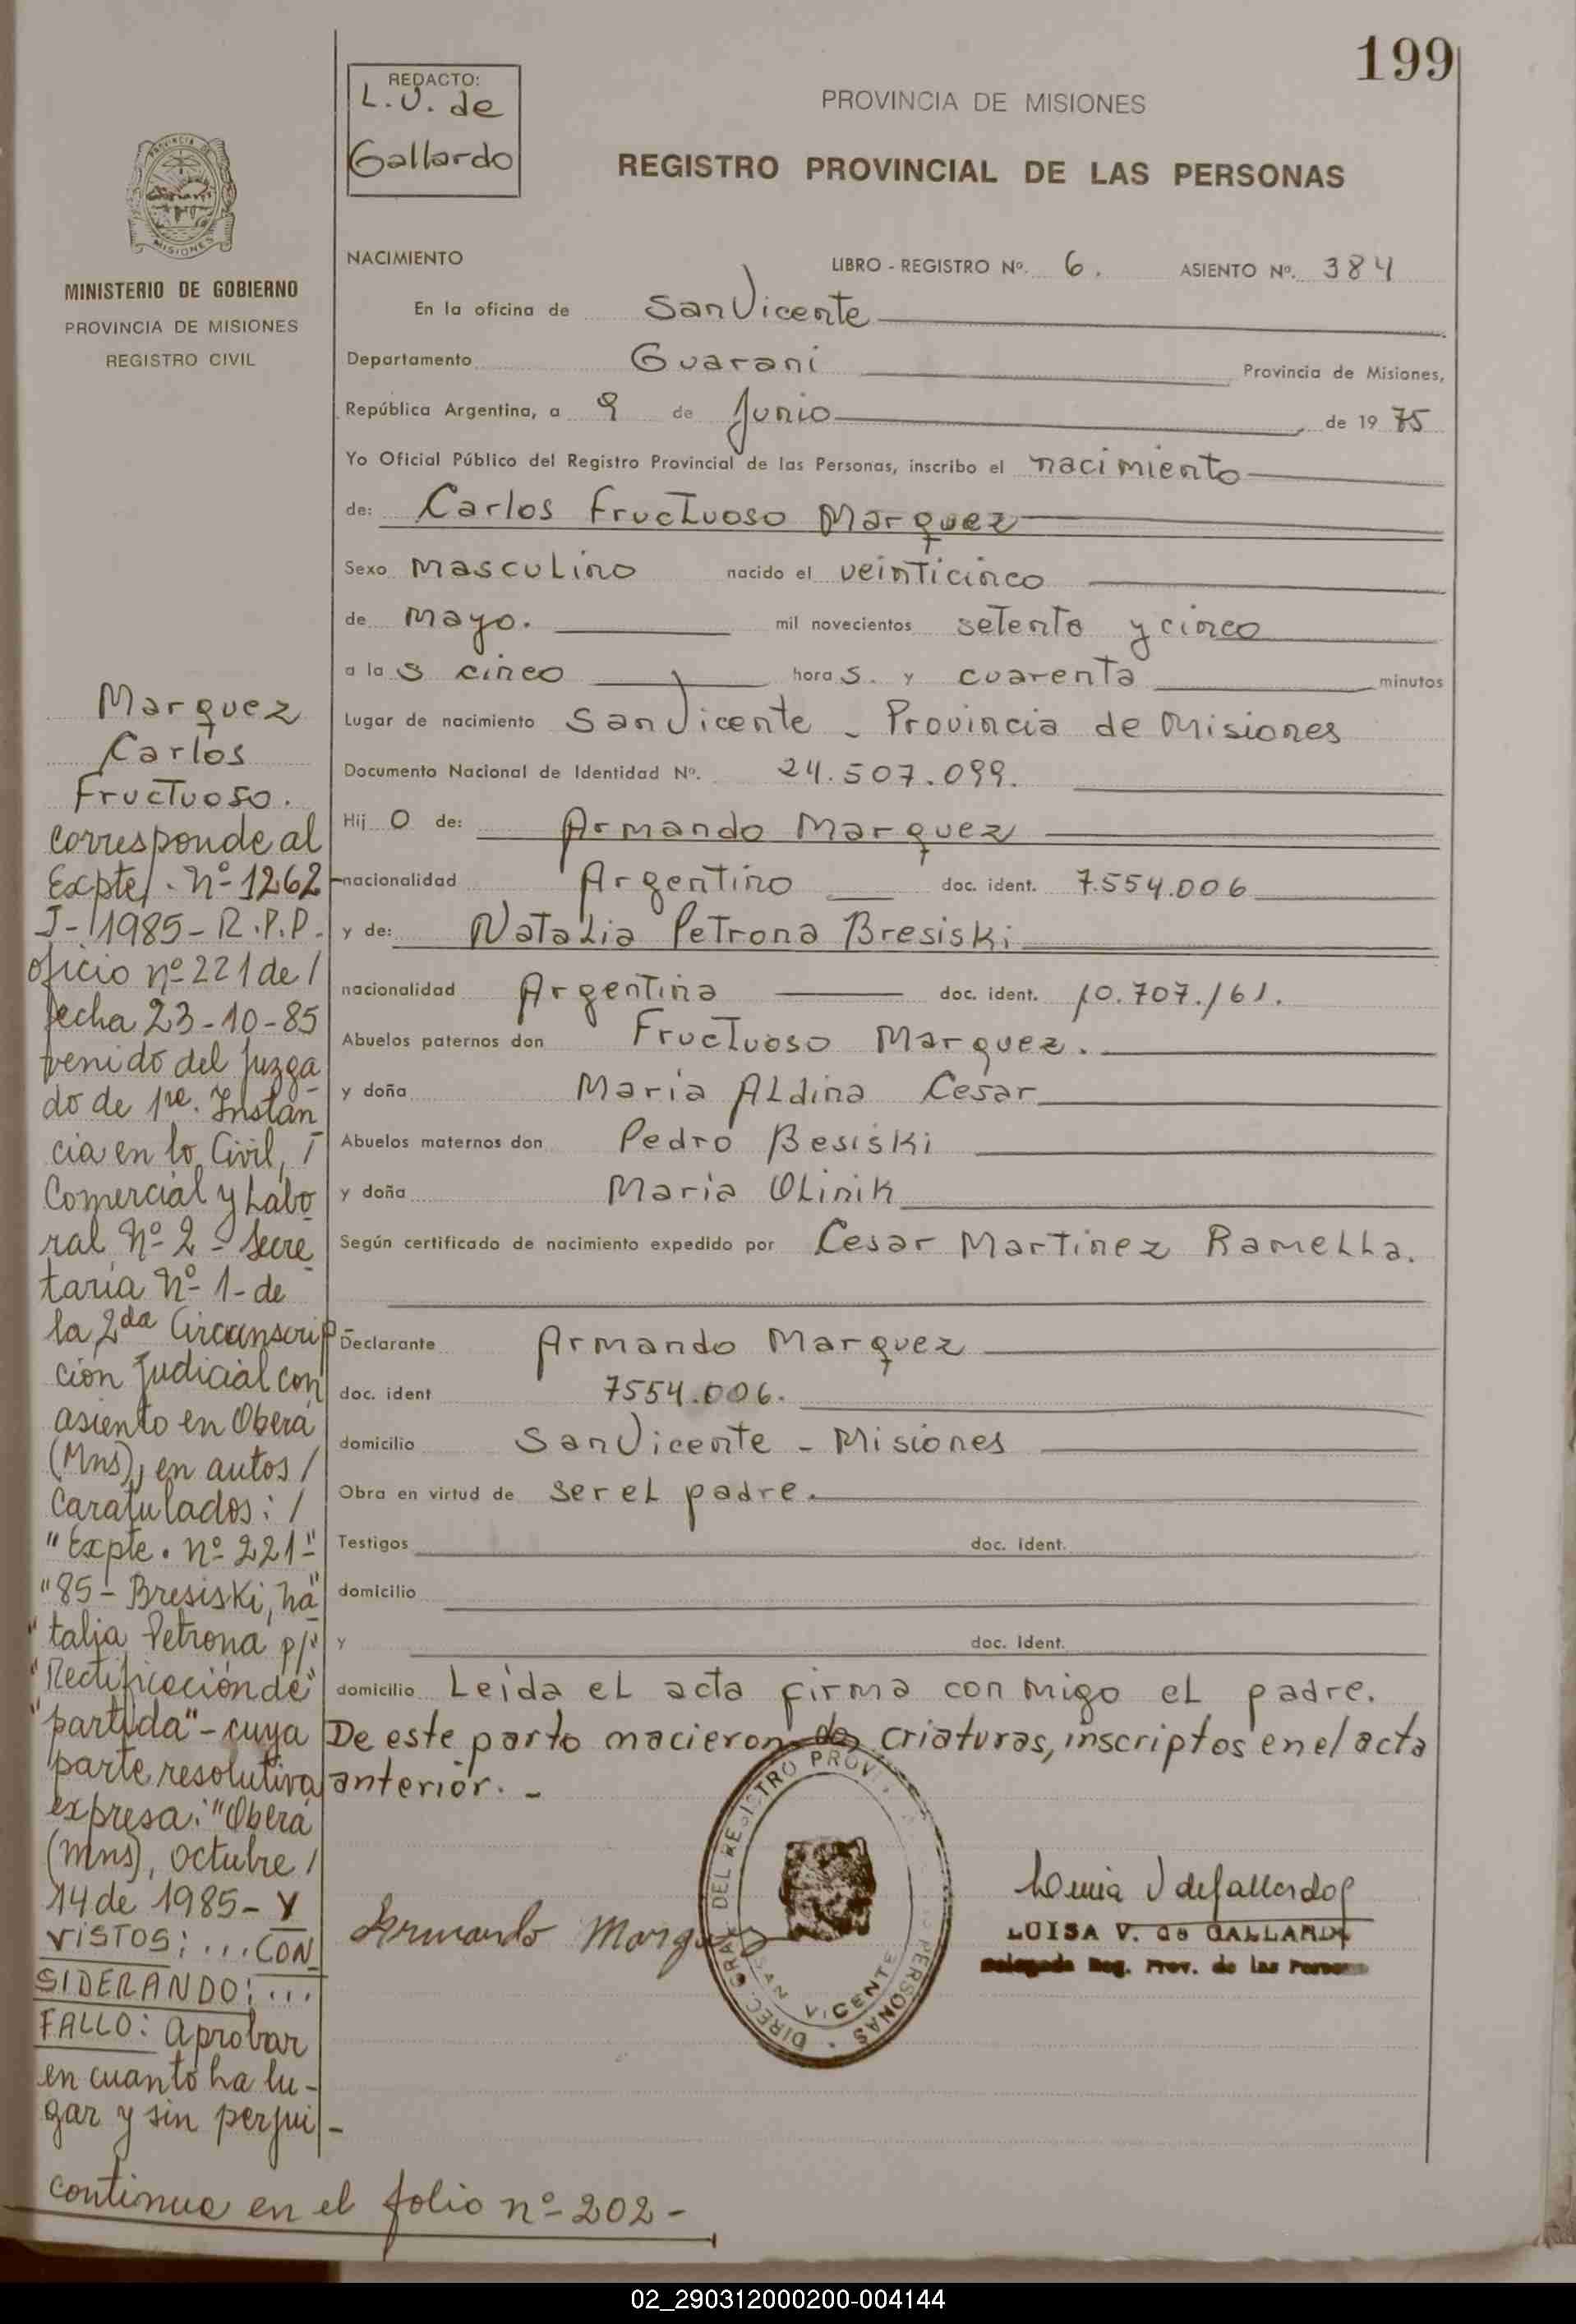 199
REDACTO:
L.V. de
Gallardo
PROVINCIA DE MISIONES
REGISTRO PROVINCIAL DE LAS PERSONAS
PROVINCIA DE
MISIONES
MINISTERIO DE GOBIERNO
PROVINCIA DE MISIONES
REGISTRO CIVIL
NACIMIENTO
LIBRO - REGISTRO Nº. 6. ASIENTO Nº. 384
En la oficina de San Vicente
Departamento Guarani Provincia de Misiones,
República Argentina, a 9 de Junio, de 1975
Yo Oficial Público del Registro Provincial de las Personas, inscribo el nacimiento
de: Carlos Fructuoso Marquez
Sexo masculino nacido el veinticinco
de mayo. mil novecientos setenta y cinco
a las cinco horas. y cuarenta minutos
Lugar de nacimiento San Vicente - Provincia de Misiones
Documento Nacional de Identidad Nº. 24.507.099.
Hijo de: Armando Marquez
nacionalidad Argentino doc. ident. 7.554.006
y de: Natalia Petrona Bresiski
nacionalidad Argentina doc. ident. 10.707.161.
Abuelos paternos don Fructuoso Marquez.
y doña Maria Aldina Cesar
Abuelos maternos don Pedro Besiski
y doña Maria Olinik
Según certificado de nacimiento expedido por Cesar Martinez Ramella.
Declarante Armando Marquez
doc. ident 7554.006.
domicilio San Vicente - Misiones
Obra en virtud de ser el padre.
Testigos doc. Ident.
domicilio
y doc. Ident.
domicilio Leida el acta firma con migo el padre.
De este parto nacieron dos criaturas, inscriptos en el acta
anterior. -
Armando Marquez
DIREC. GRAL. DEL REGISTRO PROV. PERSONAS
SAN VICENTE
LUISA V. de GALLARDO
Delegada Reg. Prov. de las Personas
Marquez
Carlos
Fructuoso.
Corresponde al
Expte/. nº 1262-
J-/1985-R.P.P.
oficio nº 221 de/
fecha 23-10-85
venido del Juzga
do de 1re. Instan
cia en lo Civil, /
Comercial y Labo
ral nº 2 - Secre
taria nº 1- de
la 2da Circunscrip-
ción Judicial con
asiento en Oberá
(Mns), en autos/
Caratulados: /
"Expte. nº 221-"
"85- Bresiski, Na"
"talia Petrona p/"
"Rectificación de"
"partida"- cuya
parte resolutiva
expresa: "Oberá
(mns), octubre/
14 de 1985- Y
VISTOS: ... CON
SIDERANDO: ...
FALLO: Aprobar
en cuanto ha lu-
gar y sin perjui-
continua en el folio nº 202-
02_290312000200-004144